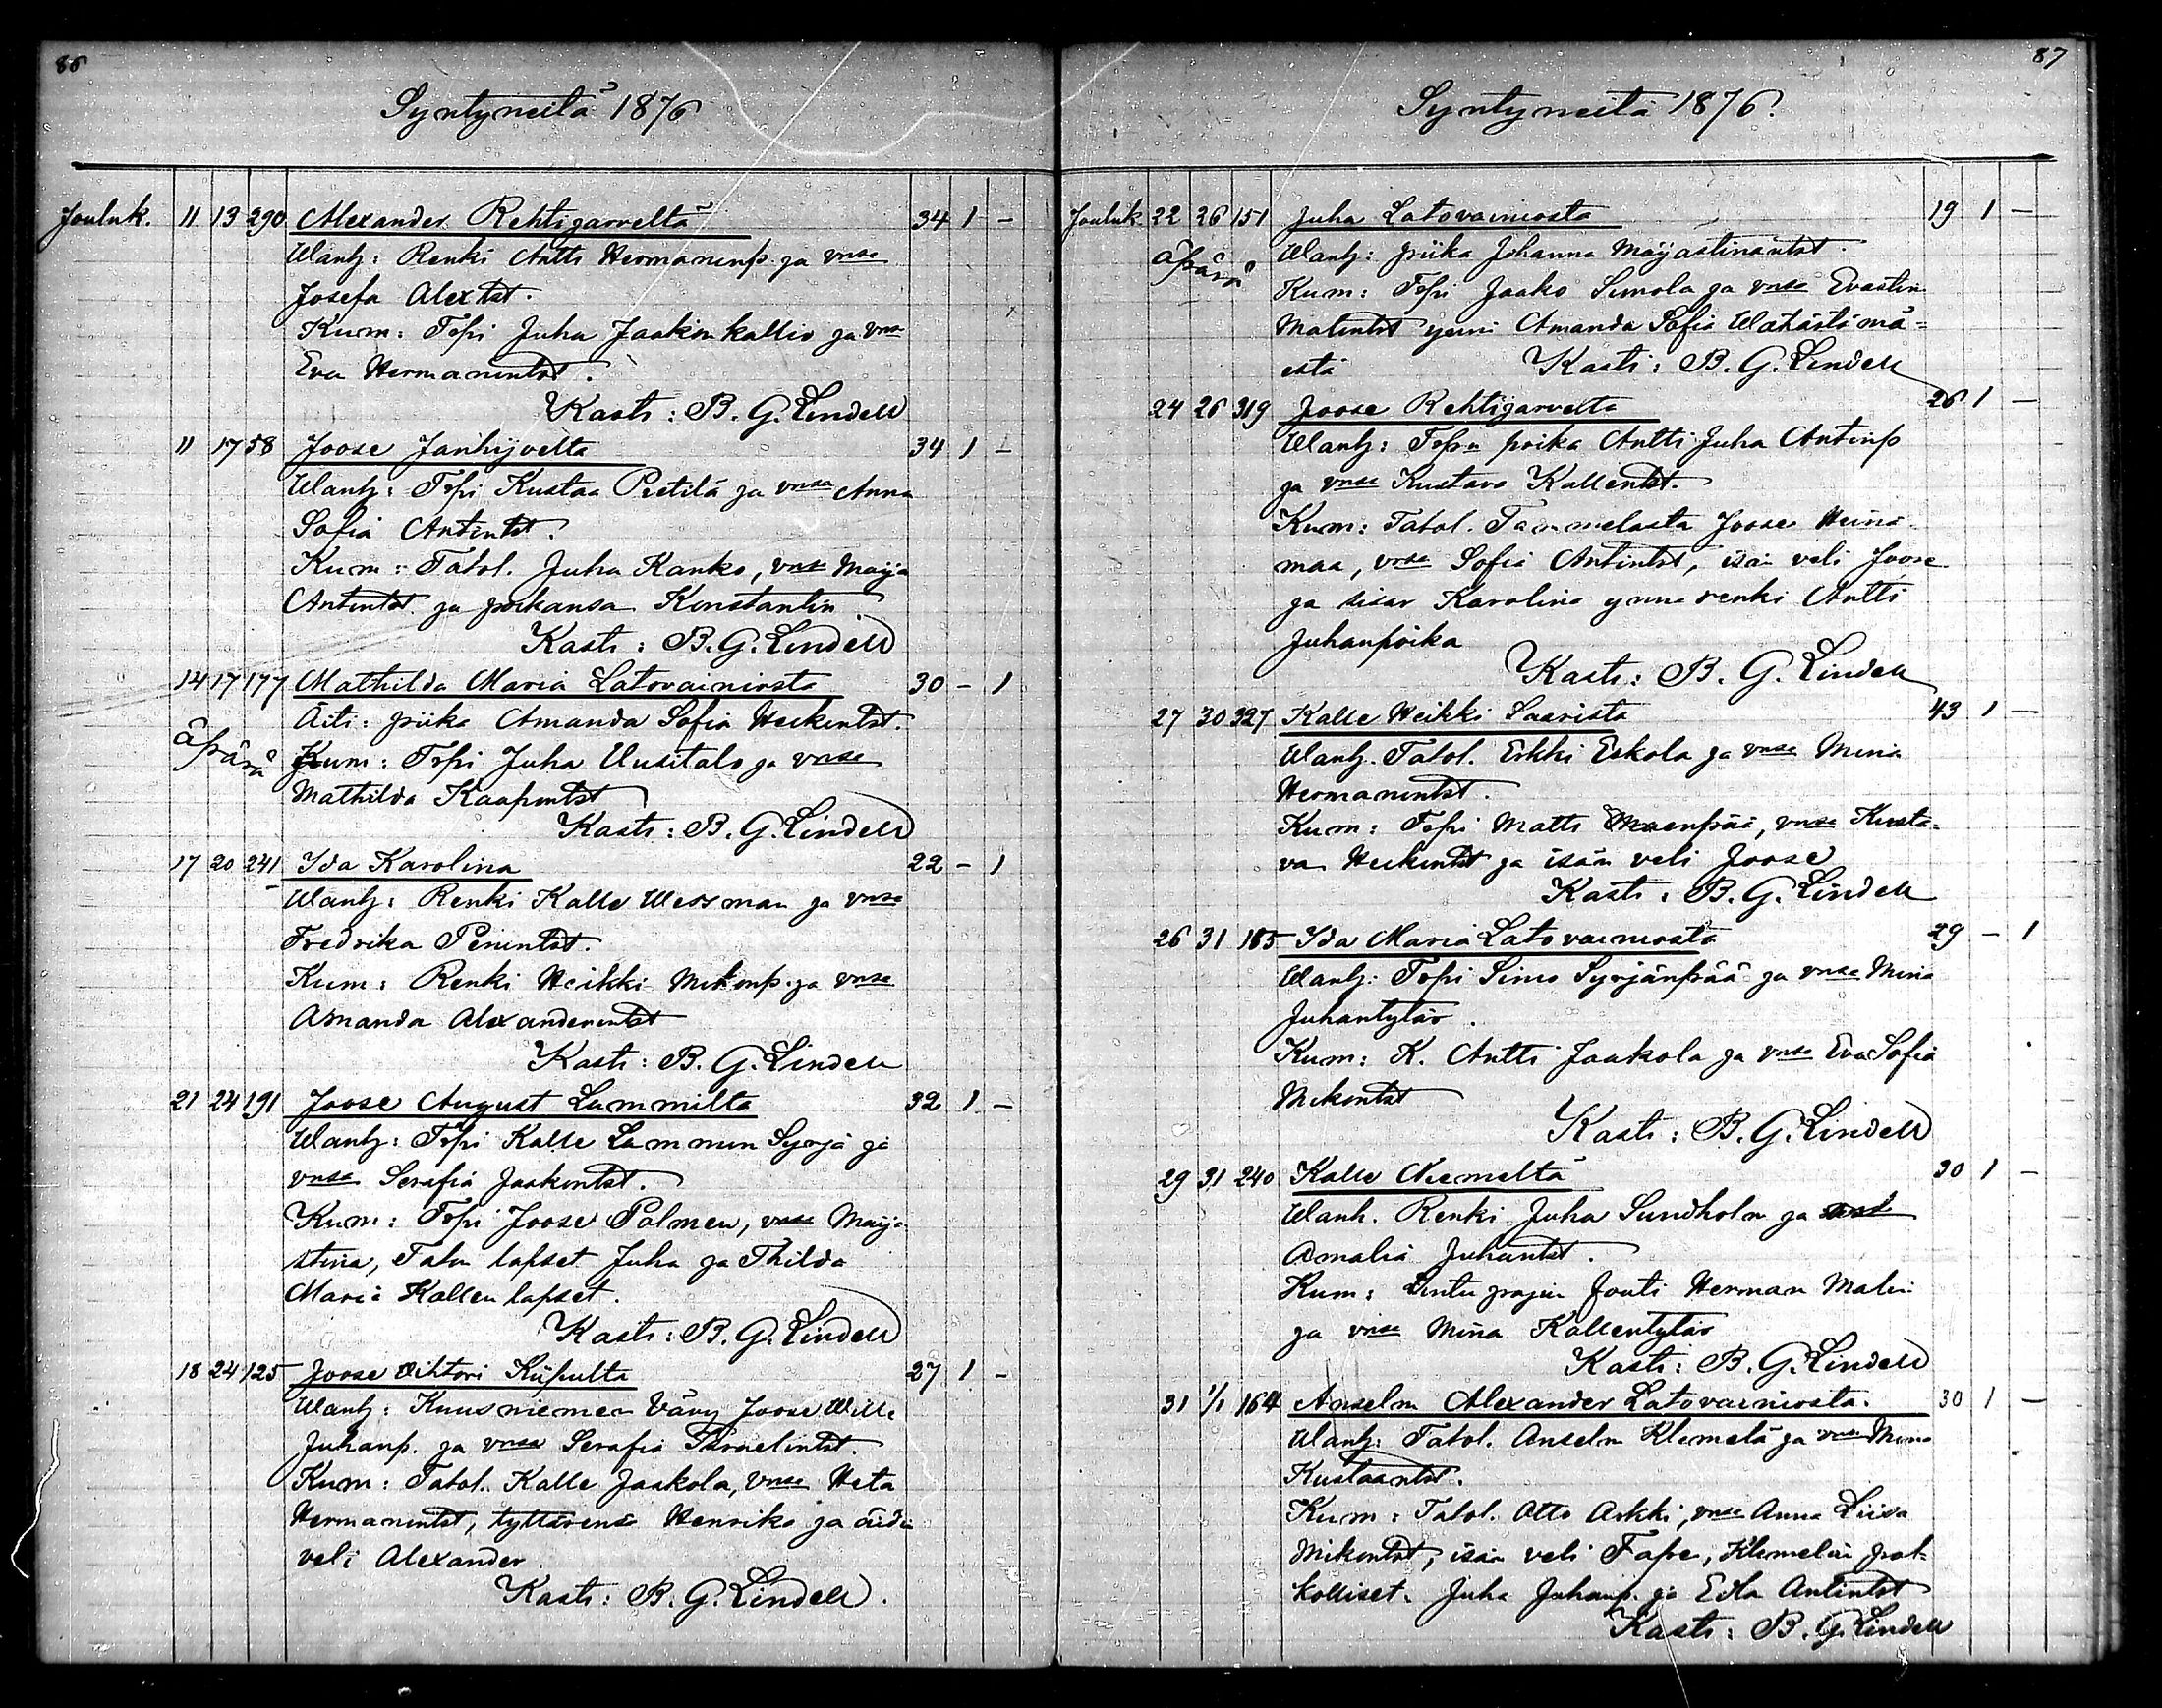 86
Syntyneitä 1876
Jouluk. 11 13 290 Alexander Rehtijärveltä 34 1 -
Wanh: Renki Antti Hermaninp. ja vmsa
Josefa Alextst.
Kum: Topi Juha Jaakonkallio ja vmsa
Eva Hermanintst.
Kasti: B. G. Lindell
11 17 58 Joose Janhijoelta 34 1 -
Wanh: Topi Kustaa Pietilä ja vmsa Anna
Sofia Antintst.
Kum: Talol. Juha Kanko, vmsa Maija
Antintst ja poikansa Konstantin
Kasti: B. G. Lindell
14 17 177 Mathilda Maria Latovainiosta 30 - 1
Äiti: piika Amanda Sofia Heikintst.
äpärä Kum: Topi Juha Uusitalo ja vmsa
Mathilda Kaapintst
Kasti: B. G. Lindell
17 20 241 Ida Karolina 22 - 1
Wanh: Renki Kalle Wessman ja vmsa
Fredrika
Kum: Renki Heikki Mikonp. ja vmsa
Amanda Alexanderintst
Kasti: B. G. Lindell
21 24 191 Joose August Lammilta 32 1 -
Wanh: Topi Kalle Lammin Syrjä ja
vmsa Serafia Jaakontst.
Kum: Topi Joose Palmen, vmsa Maija
stina, Talon lapset Juha ja Thilda
Maria Kallen lapset.
Kasti: B. G. Lindell
18 24 125 Joose Vihtori Kiipulta 27 1 -
Wanh: Kuusniemen Vävy Joose Wille
Juhanp. ja vmsa Serafia Israelintst.
Kum: Talol. Kalle Jaakola, vmsa Heta
Hermanintst, tyttärensä Henrika ja äidin
veli Alexander.
Kasti: B. G. Lindell.
87
Syntyneitä 1876.
Jouluk 22 26 151 Juha Latovainiosta 19 1 -
äpärä Wanh: piika Johanna Maijastinantst.
Kum: Topi Jaako Simola ja vmsa Evastina
Matintst ynni Amanda Sofia Wähästämä-
estä Kasti: B. G. Lindell
24 26 319 Joose Rehtijärveltä 26 1 -
Wanh: Topn poika Antti Juha Antinp
ja vmsa Kustava Kallentst.
Kum: Talol. Tammelasta Joose Heinä
maa, vmsa Sofia Antintst, isän veli Joose
ja sisar Karolina ynnä renki Antti
Juhanpoika
Kasti: B. G. Lindell
27 30 327 Kalle Heikki Saarista 43 1 -
Wanh. Talol. Erkki Eskola ja vmsa Mina
Hermanintst.
Kum: Topi Matti Maenpää, vmsa Kusta-
va Heikintst ja isän veli Joose
Kasti: B. G. Lindell
26 31 185 Ida Maria Latovainiosta 29 - 1
Wanh: Topi Simo Syrjänpää ja vmsa Mina
Juhantytär.
Kum: K. Antti Jaakola ja vmsa Eva Sofia
Mikontst
Kasti: B. G. Lindell
29 31 240 Kalle Niemeltä 30 1 -
Wanh. Renki Juha Sundholm ja
Amalia Juhantst.
Kum: Lintupajun Jouti Herman Malin
ja vmsa Mina Kallentytär
Kasti: B. G. Lindell
31 1/1 164 Anselm Alexander Latovainiosta. 30 1 -
Wanh: Talol. Anselm Klemelä ja vmsa Mina
Kustaantst.
Kum: Talol. Otto Arkki, vmsa Anna Liisa
Mikontst, isän veli Fape, Klemelän puol-
kolliset. Juha Juhanp. ja Edla Antintst
Kasti: B. G. Lindell